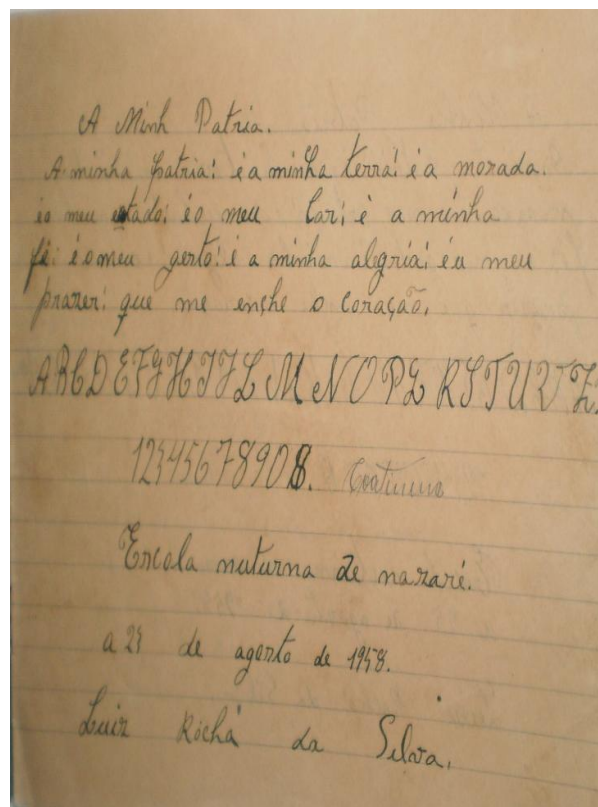 A Minh Patria.
A minha patria: é a minha terra: é a morada.
é o meu estado: é o meu lar: é a minha
fé: é o meu gosto: é a minha alegria: é u meu
prazer: que me enche o coração.
ABCDEFGHIJL MNOPQ RSTUVZ.
12345678908. Continuo
Escola nuturna de nazaré.
a 25 de agosto de 1958.
Luiz Rochá da Silva.